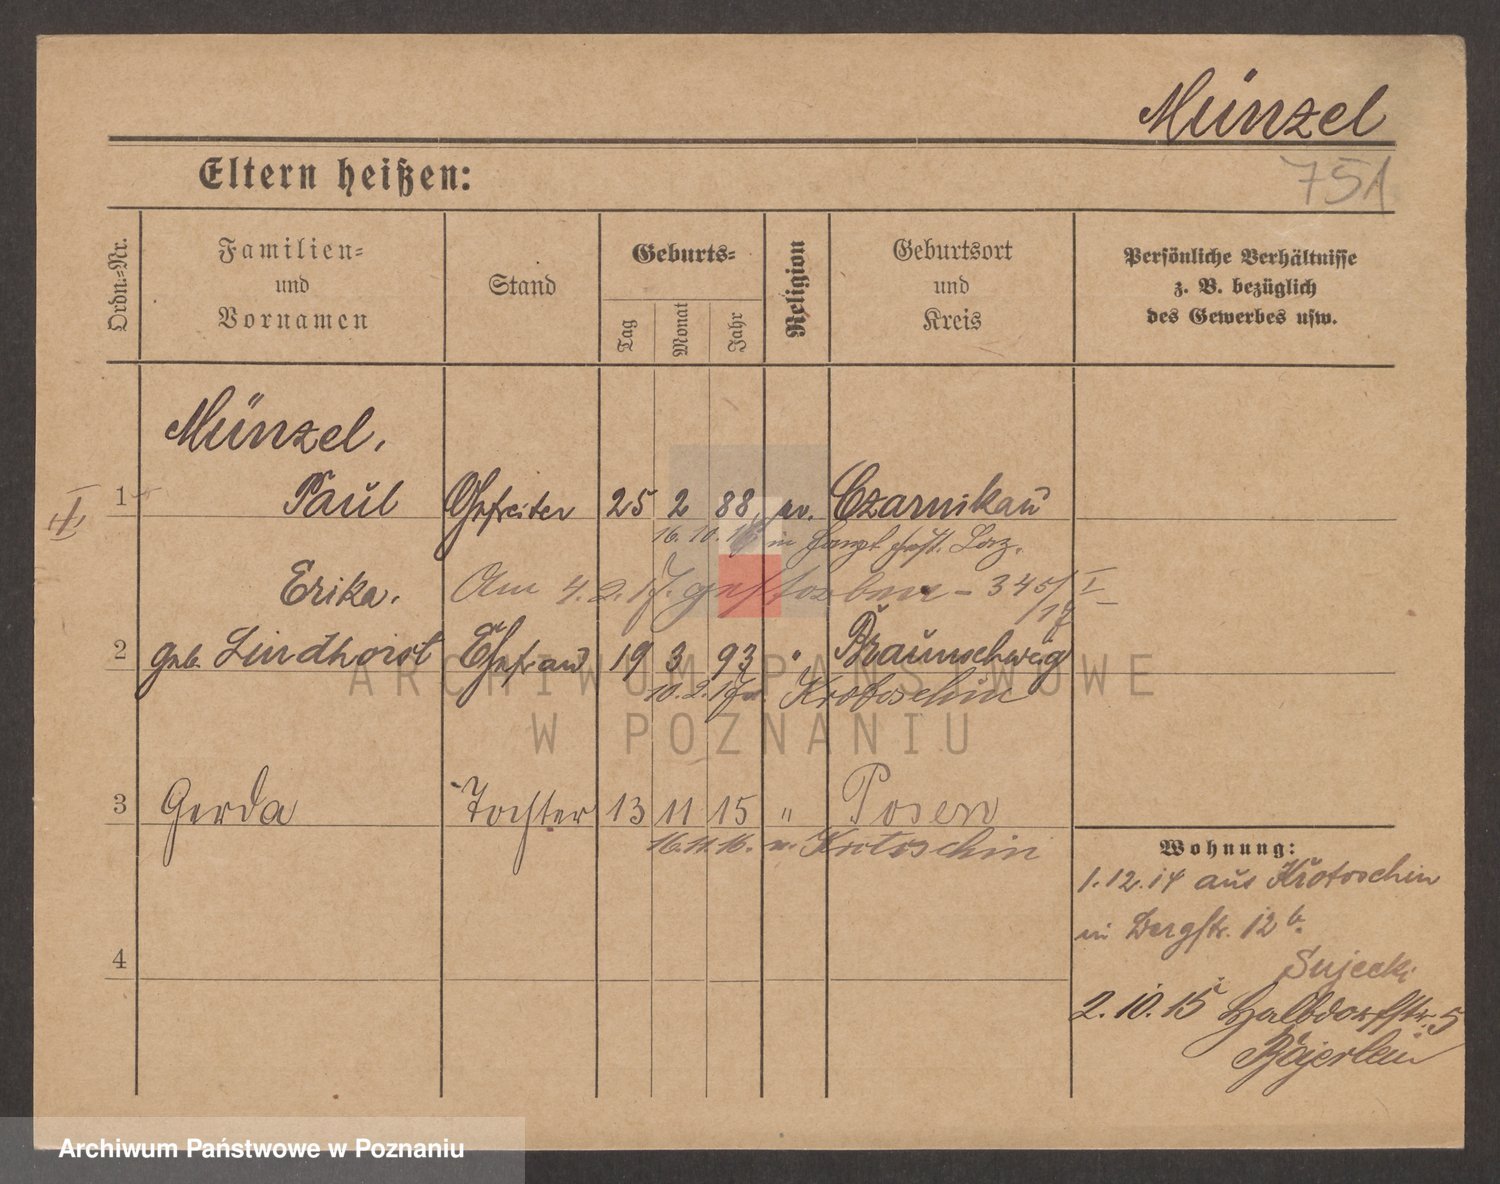 Münzel
751
Eltern heißen:
Ordn.-Nr.
Familien-
und
Vornamen
Stand
Geburts-
Tag
Monat
Jahr
Religion
Geburtsort
und
Kreis
Persönliche Verhältnisse
z. B. bezüglich
des Gewerbes usw.
Münzel,
1 Paul Gefreiter 25 2 88 ev. Czarnikau
16. 10. in Haupt Laz.
Erika. Am 4. 2. 17. gestorben – 345/I
/17
2 geb. Lindhorst Ehefrau 19 3 93 " Braunschweig
10. 2. 17 n. Krotoschin
3 Gerda Tochter 13 11 15 " Posen
16. 11. 16. n. Krotoschin
4
Wohnung:
1. 12. 14 aus Krotoschin
in Bergstr. 12 b.
Sujecki
2. 10. 15 Halbdorfstr. 5
Bajerlein
ARCHIWUM PAŃSTWOWE
W POZNANIU
Archiwum Państwowe w Poznaniu